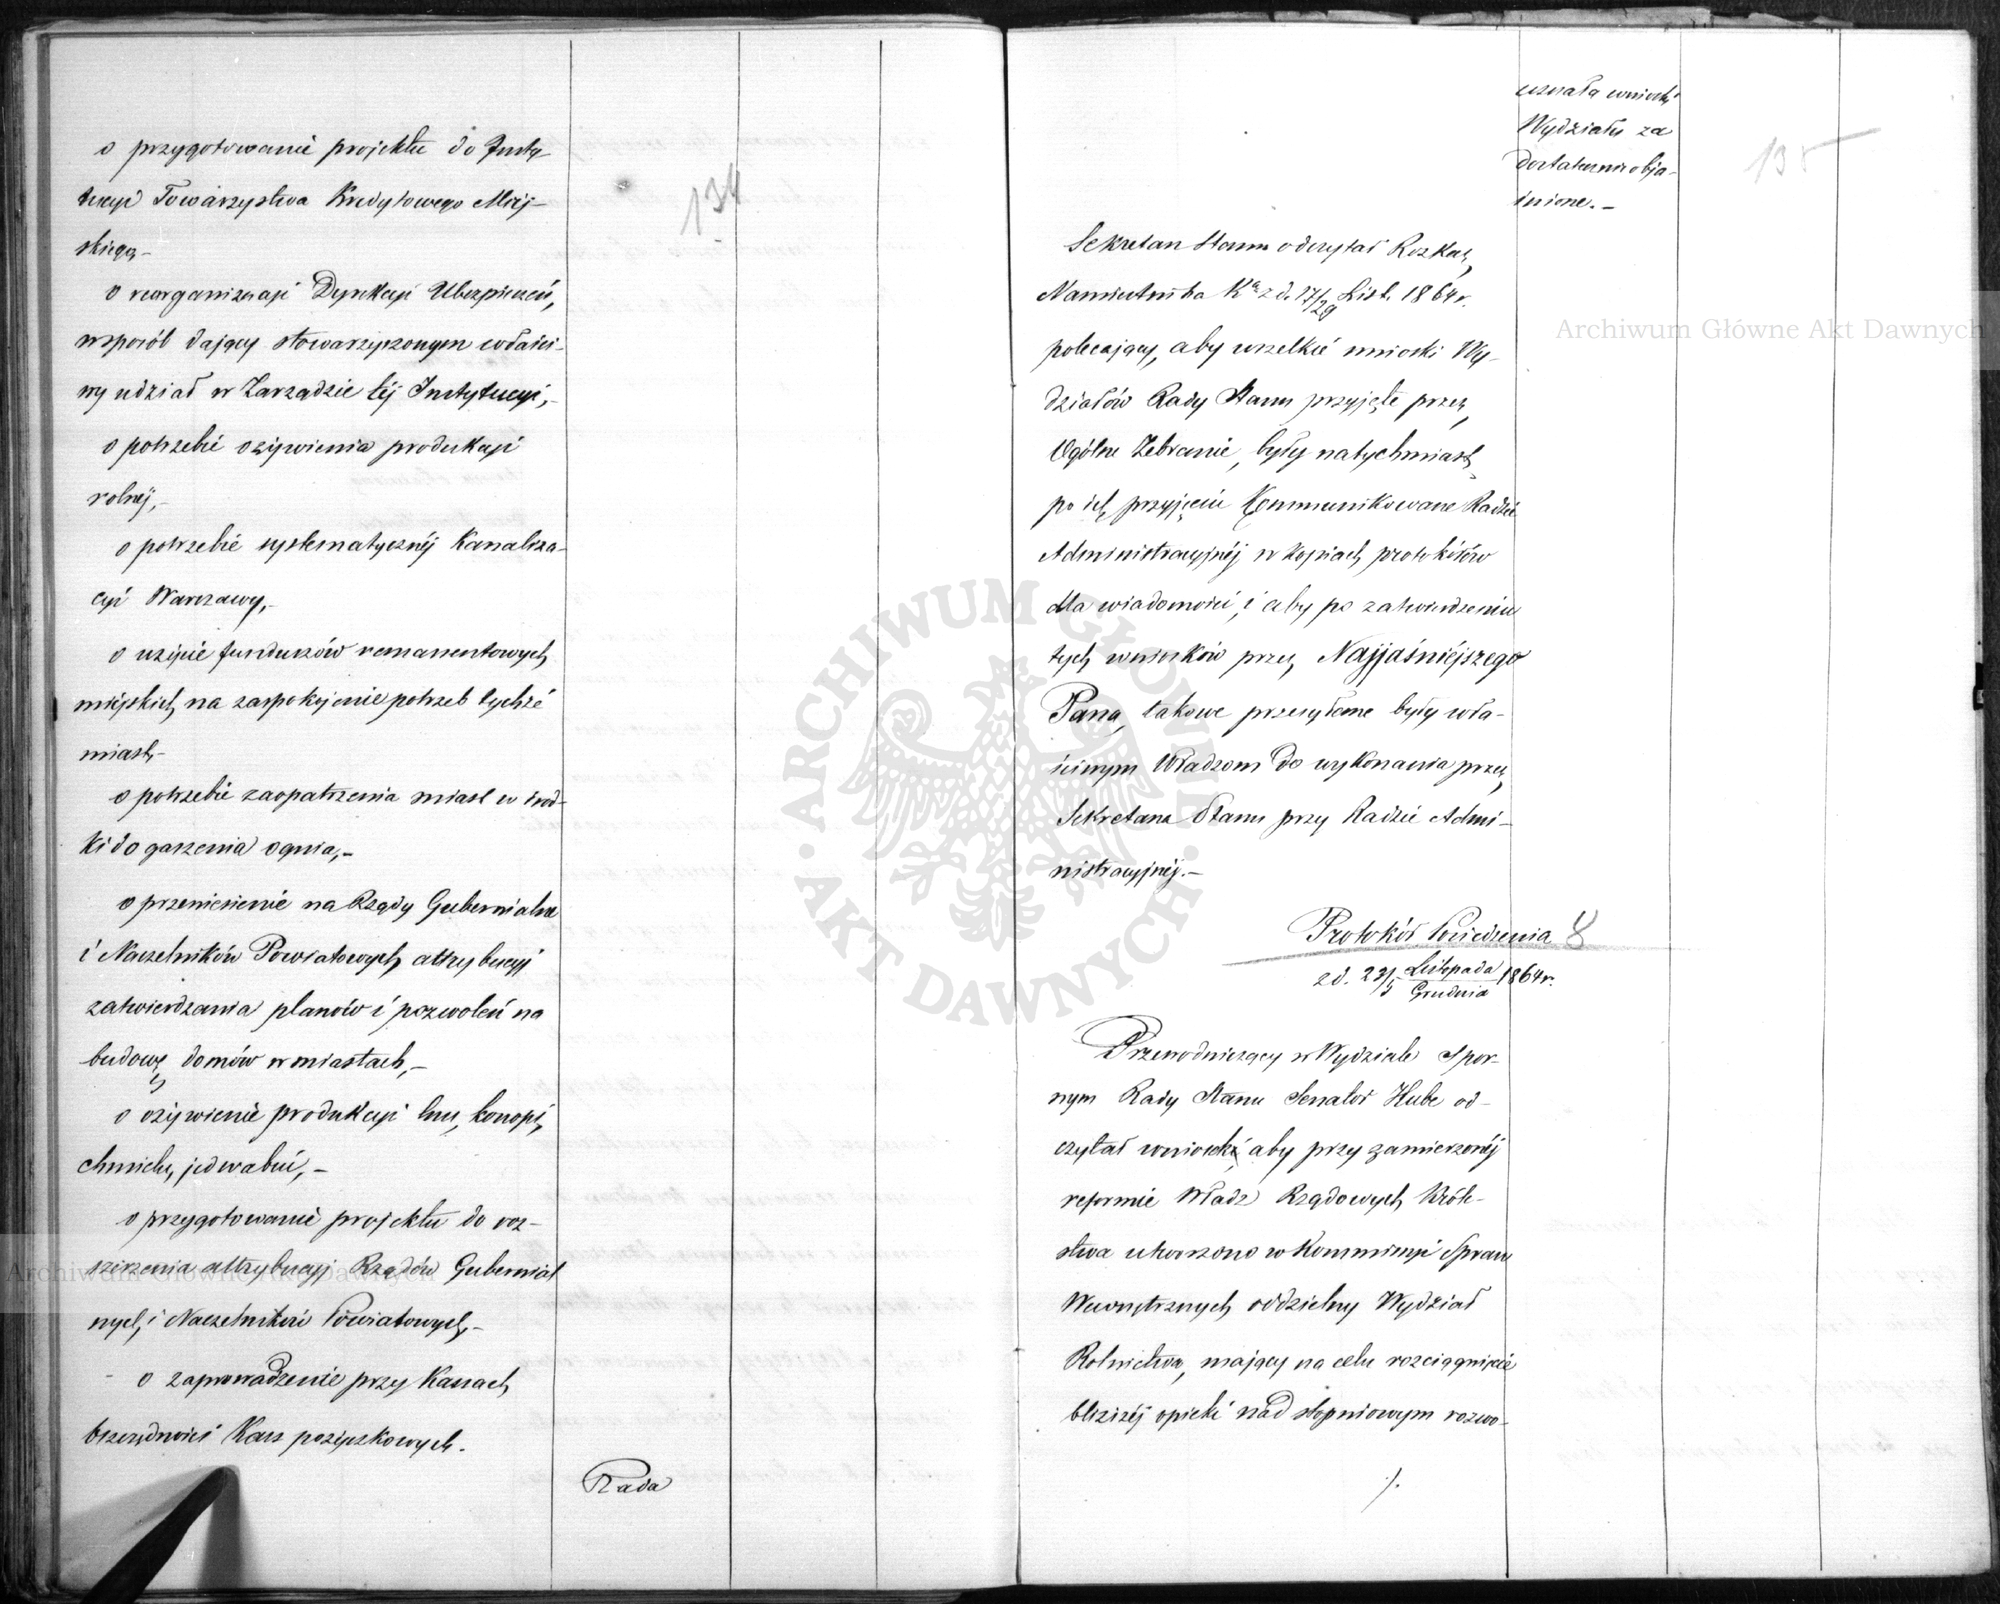 134
o przygotowanie projektu do Insty-
tucyi Towarzystwa Kredytowego Miej-
skiego,-
o reorganizacyi Dyrekcyi Ubezpieczeń,
w sposób dający stowarzyszonym właści-
wy udział w Zarządzie téj Instytucyi,-
o potrzebie ożywienia produkcyi
rolnéj,-
o potrzebie systematycznéj Kanaliza-
cyi Warszawy,-
o użycie funduszów remanentowych
miejskich na zaspokojenie potrzeb tychże
miast,-
o potrzebie zaopatrzenia miast w środ-
ki do gaszenia ognia,-
o przeniesienie na Rządy Gubernialne
i Naczelników Powiatowych attrybucyj
zatwierdzania planów i pozwoleń na
budowę domów w miastach,-
o ożywienie produkcyi lnu, konopi,
chmielu, jedwabiu,-
o przygotowanie projektu do roz-
szerzenia attrybucyj Rządów Gubernial
nych i Naczelników Powiatowych,-
o zaprowadzenie przy Kassach
oszczędności Kass pożyczkowych.
Rada
135
uznała wnioski
Wydziału za
dostatecznie obja-
śnione.-
Sekretarz Stanu odczytał Rozkaz
Namiestnika K. z d. 17/29 List. 1864 r.
polecający, aby wszelkie wnioski Wy-
działów Rady Stanu przyjęte przez
Ogólne Zebranie, były natychmiast
po ich przyjęciu Kommunikowane Radzie
Administracyjnéj w kopiach protokółów
dla wiadomości, i aby po zatwierdzeniu
tych wniosków przez Najjaśniejszego
Pana, takowe przesyłane były wła-
ściwym Władzom do wykonania przez
Sekretarza Stanu przy Radzie Admi-
nistracyjnéj.-
Protokół Posiedzenia 8
z d. 23/5 Listopada/Grudnia 1864 r.
Przewodniczący w Wydziale Spor-
nym Rady Stanu Senator Hube od-
czytał wnioski, aby przy zamierzonéj
reformie Władz Rządowych Króle-
stwa utworzono w Kommissyi Spraw
Wewnętrznych oddzielny Wydział
Rolnictwa, mający na celu rozciągnięcie
bliższéj opieki nad stopniowym rozwo-
./.
ARCHIWUM GŁÓWNE AKT DAWNYCH
Archiwum Główne Akt Dawnych
Archiwum Główne Akt Dawnych